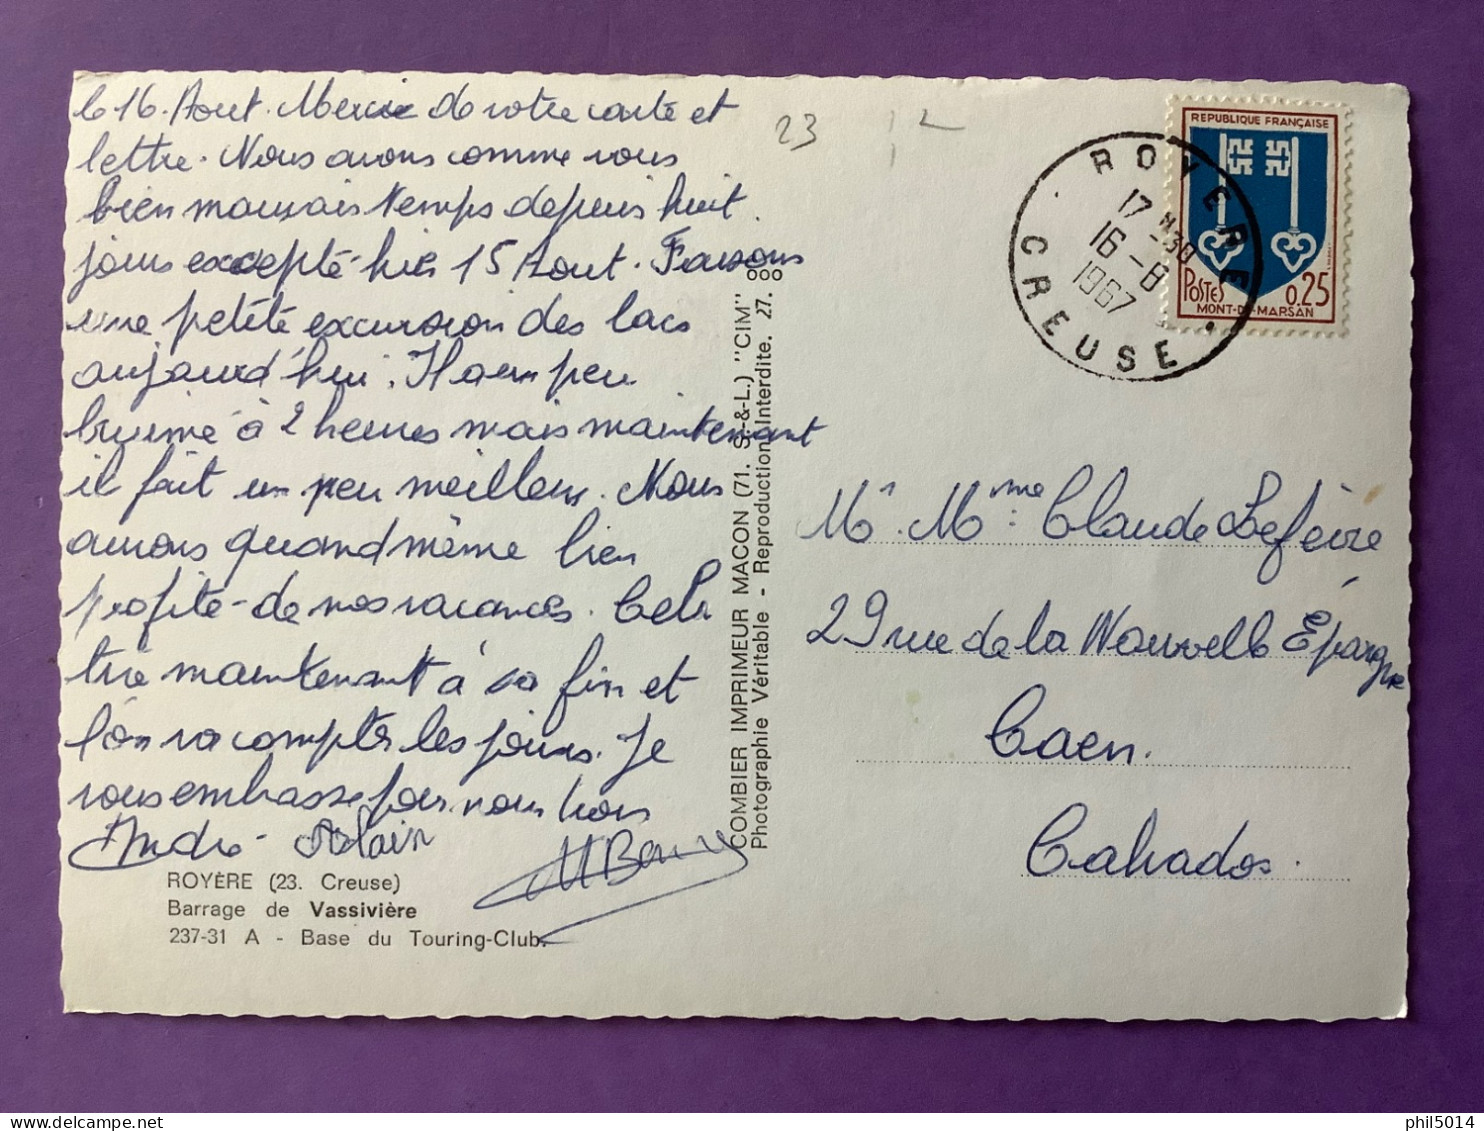 le 16. Aout. Merci de votre carte et
lettre. Nous avons comme vous
bien mauvais temps depuis huit
jours excepté hier 15 Aout. Faisons
une petite excursion des lacs
aujourd'hui. Il a un peu
bruiné à 2 heures mais maintenant
il fait un peu meilleur. Nous
aurons quand même bien
profité de nos vacances. Cela
tire maintenant à sa fin et
l'on va compter les jours. Je
vous embrasse pour nous trois
André Alain
ROYÈRE (23. Creuse)
Barrage de Vassivière
237-31 A - Base du Touring-Club.
COMBIER IMPRIMEUR MACON (71. S.-&-L.) "CIM"
Photographie Véritable - Reproduction Interdite. 27. ooo
23
REPUBLIQUE FRANÇAISE
POSTES 0.25
MONT-DE-MARSAN
ROYERE
17 H 30
16-8
1967
CREUSE
Mr. Mme: Claude Lefèvre
29 rue de la Nouvelle Épargne
Caen.
Calvados.
phil5014